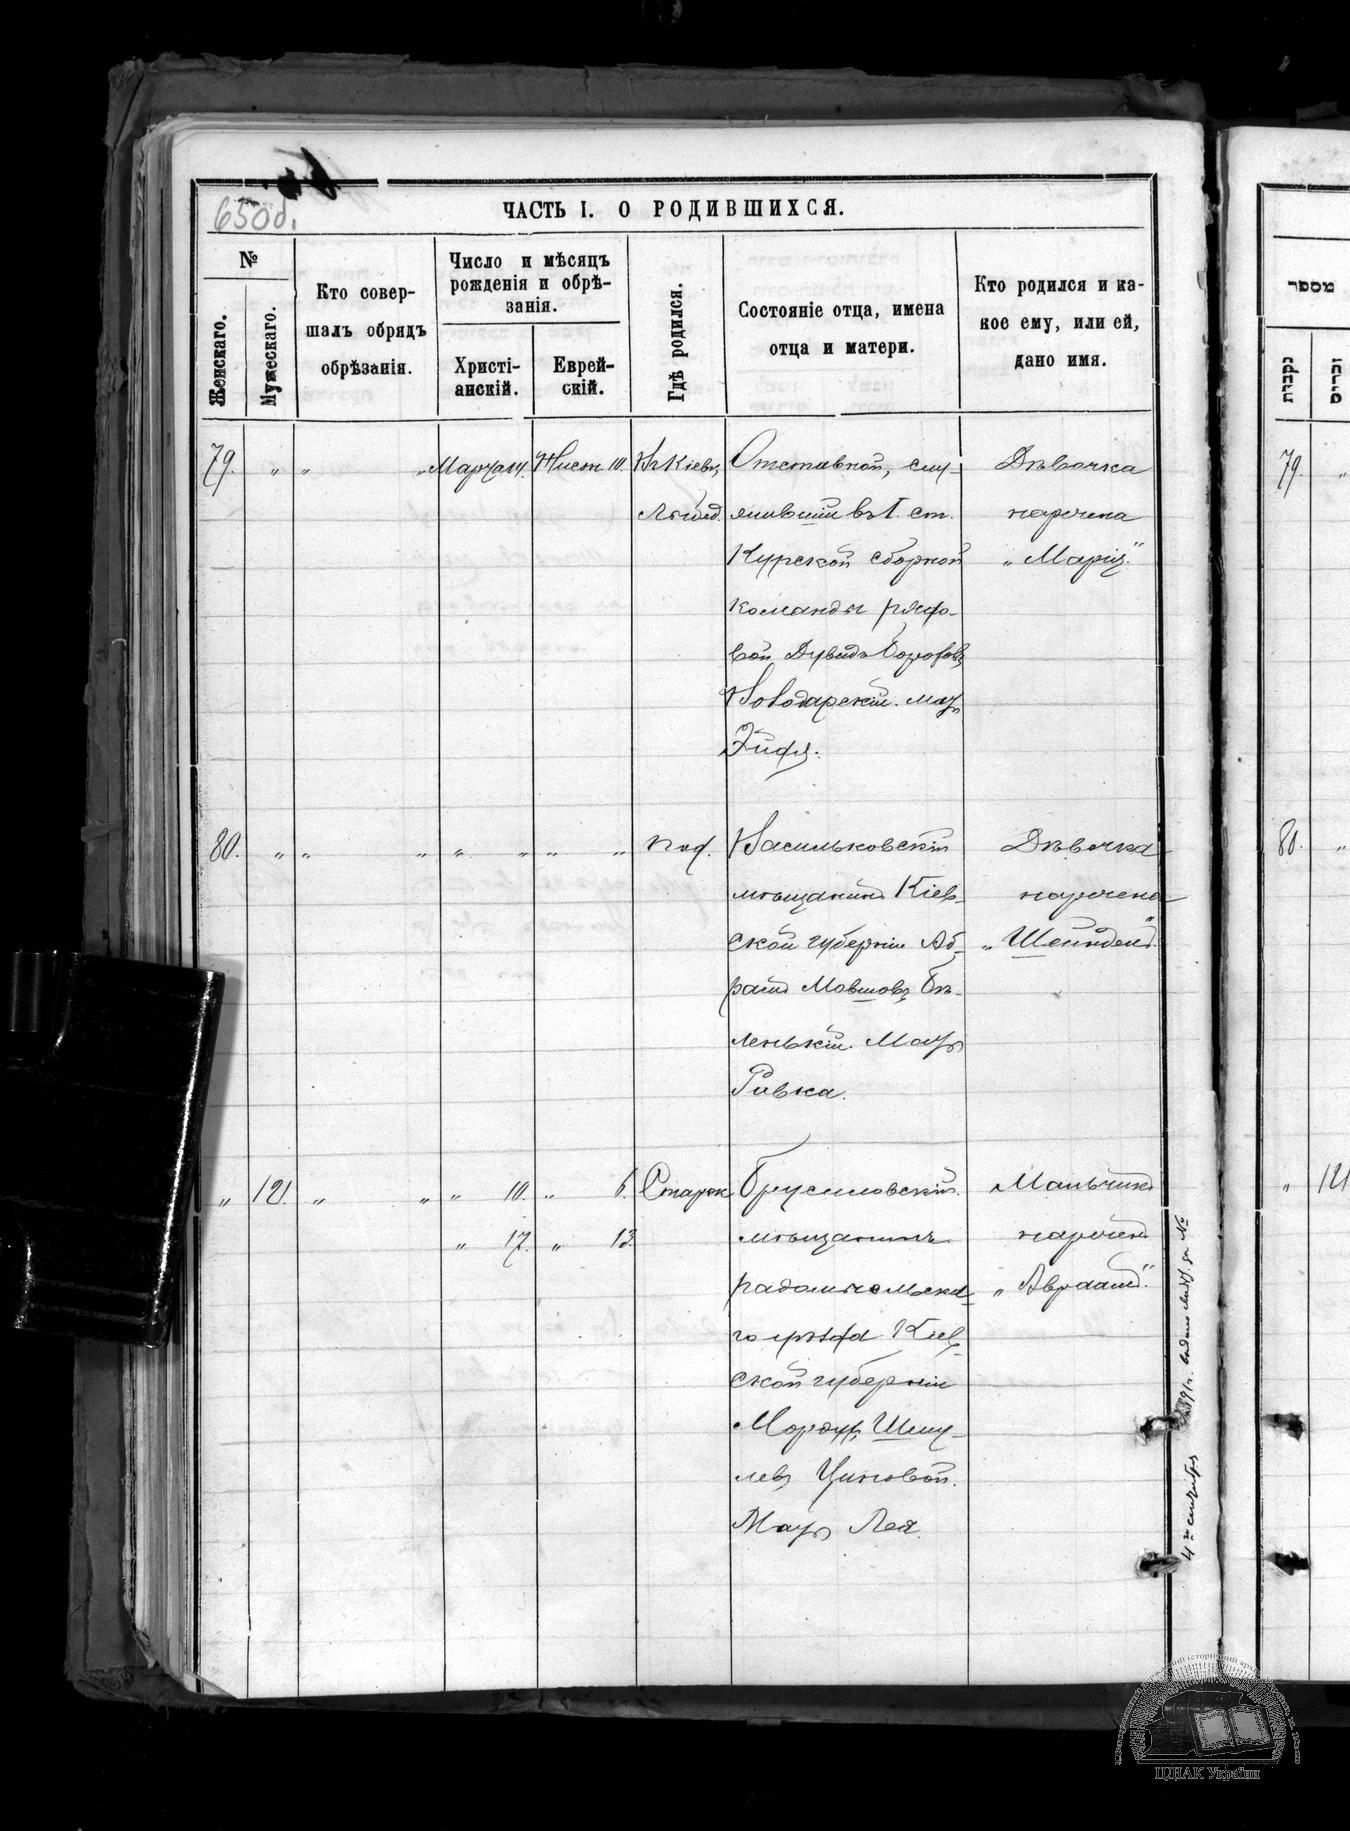 650б.
ЧАСТЬ I. О РОДИВШИХСЯ.
№
Женскаго.
Мужескаго.
Кто совер-
шалъ обрядъ
обрѣзанія.
Число и мѣсяцъ
рожденія и обрѣ-
занія.
Христі-
анскій.
Еврей-
скій.
Гдѣ родился.
Состояніе отца, имена
отца и матери.
Кто родился и ка-
кое ему, или ей,
дано имя.
79. " " " Марта 14. Нисн 10. Въ Кіевѣ,
Лыбед.
Отставной, слу-
жившій въ 1. ст.
Курской сборной
команды рядо-
вой Дувидъ
Володарскій. мать
Эйдя.
Дѣвочка
наречена
„Марія."
80. " " " " " " " Под.
Васильковскій
мѣщанинъ Кіев-
ской губерніи Аб-
рамъ Мовшовъ Бѣ-
ленькій. Мать
Ривка.
Дѣвочка
наречена
„Шейндель."
" 121. " " " 10. " 6. Старок
" 17. " 13.
Брусиловскій
мѣщанинъ
радомысльска-
го уѣзда Кіев-
ской губерніи
Мордхъ Шму-
левъ Циновой.
Мать Лея.
Мальчикъ
нареченъ
„Авраамъ."
4го сентября 1891 г. выдано за №
מספר
נקבות
זכרים
79.
80. "
" 121
ЦДІАК України